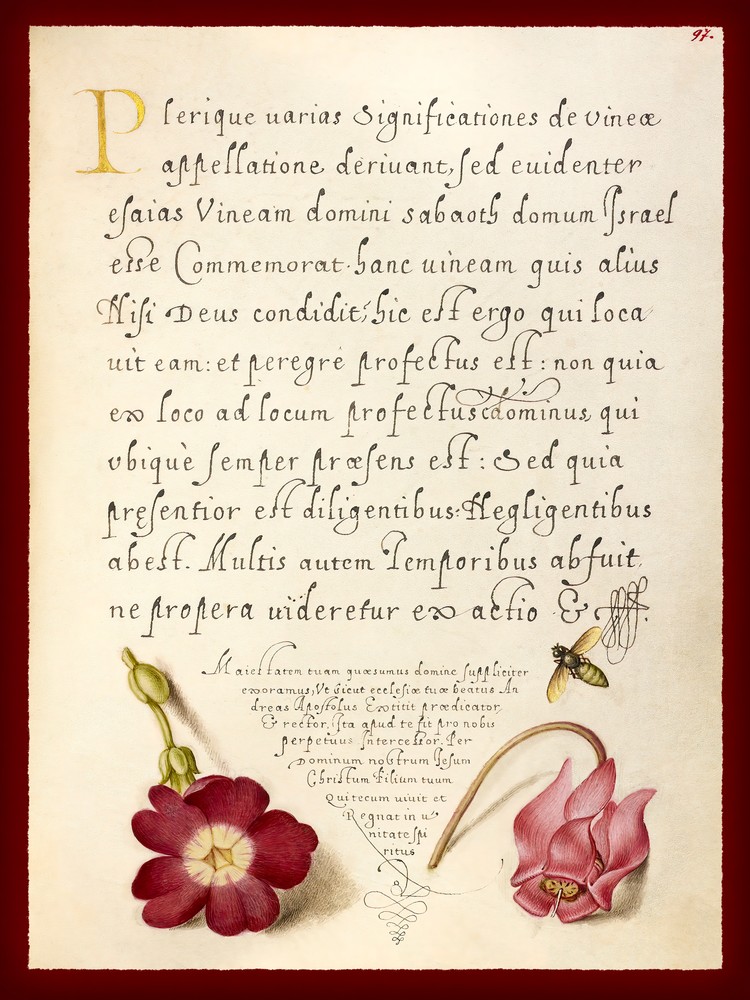 97.
Plerique uarias Significationes de vineæ
appellatione deriuant, sed euidenter
esaias Vineam domini sabaoth domum Israel
esse Commemorat. hanc uineam quis alius
Nisi Deus condidit; hic est ergo qui loca
uit eam: et peregre profectus est: non quia
ex loco ad locum profectus dominus, qui
vbique semper præsens est: Sed quia
pręsentior est diligentibus: Negligentibus
abest. Multis autem Temporibus abfuit,
ne propera uideretur exactio &
Maiestatem tuam quæsumus domine suppliciter
exoramus, Vt sicut ecclesiæ tuæ beatus An
dreas Apostolus Extitit prædicator,
& rector, Ita apud te sit pro nobis
perpetuus Intercessor. Per
Dominum nostrum Iesum
Christum Filium tuum
Qui tecum uiuit et
Regnat in u
nitate spi
ritus